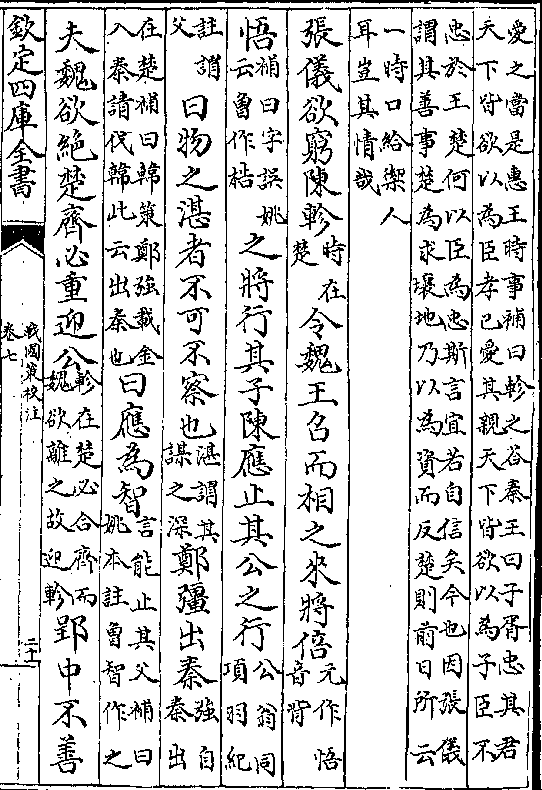 愛之當是惠王時事補曰軫之答秦王曰子胥忠其君
天下皆欲以為臣孝己愛其親天下皆欲以為子臣不
忠於王楚何以臣為忠斯言宜若自信矣今也因張儀
謂其善事楚為求壤地乃以為資而反楚則前日所云
一時口給禦人
耳豈其情哉
張儀欲窮陳軫時在楚令魏王召而相之來將倍元作悟音背
悟補曰字誤姚云魯作梏之將行其子陳應止其公之行公翁同項羽紀
註謂父曰物之湛者不可不察也湛謂其謀之深鄭彊出秦強自秦出
在楚補曰韓策鄭強載金入秦請伐韓此云出秦也曰應為智言能止其父補曰姚本註魯智作之
夫魏欲絶楚齊必重迎公軫在楚必合齊而魏欲離之故迎軫郢中不善
欽定四庫全書
戰國策校注
卷七
二十一